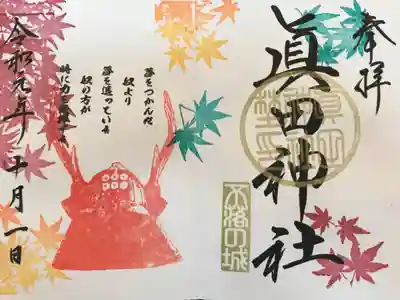 奉拝
眞田神社
不落の城
夢をつかんだ
奴より
夢を追っている
奴の方が
時に力を
令和元年十一月一日